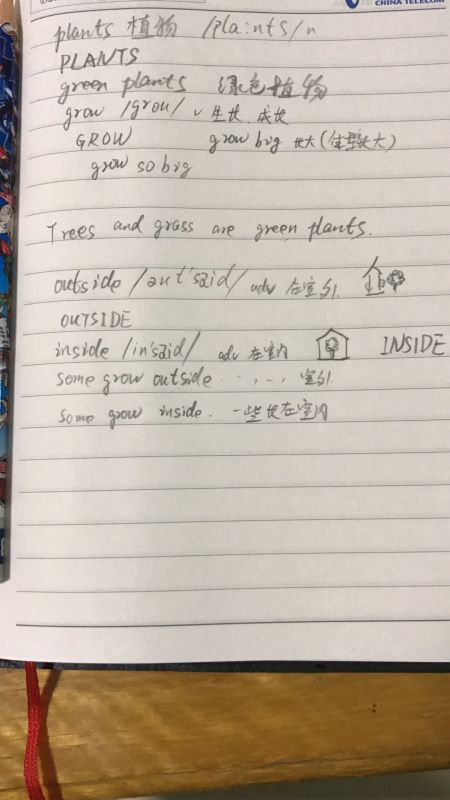 CHINA TELECOM
plants 植物 /pla:nts/n
PLANTS
green plants 绿色植物
grow /grou/ v 生长 成长
GROW grow big 长大(体型长大)
grow so big
Trees and grass are green plants.
outside /aut'said/ adv 在室外
OUTSIDE
inside /in'said/ adv 在室内 INSIDE
some grow outside. 室外
some grow inside. 一些长在室内